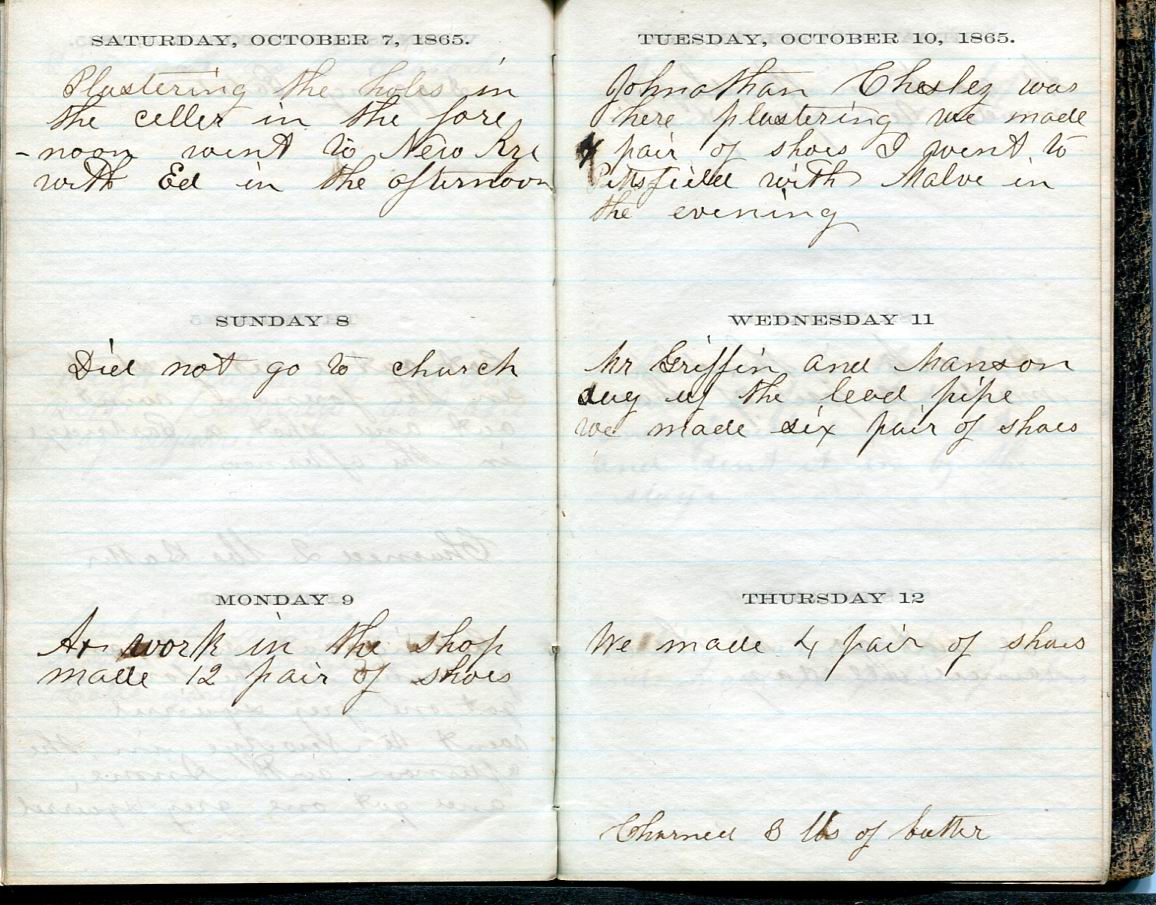 SATURDAY, OCTOBER 7, 1865.
Plastering the holes in
the celler in the fore
-noon went to New Rye
with Ed in the afternoon
SUNDAY 8
Did not go to church
MONDAY 9
At work in the shop
made 12 pair of shoes
TUESDAY, OCTOBER 10, 1865.
Johnathan Chesley was
here plastering we made
4 pair of shoes I went to
Pittsfield with Malve in
the evening
WEDNESDAY 11
Mr Griffin and Manson
dug up the lead pipe
we made six pair of shoes
THURSDAY 12
We made 4 pair of shoes
Churned 8 lbs of butter